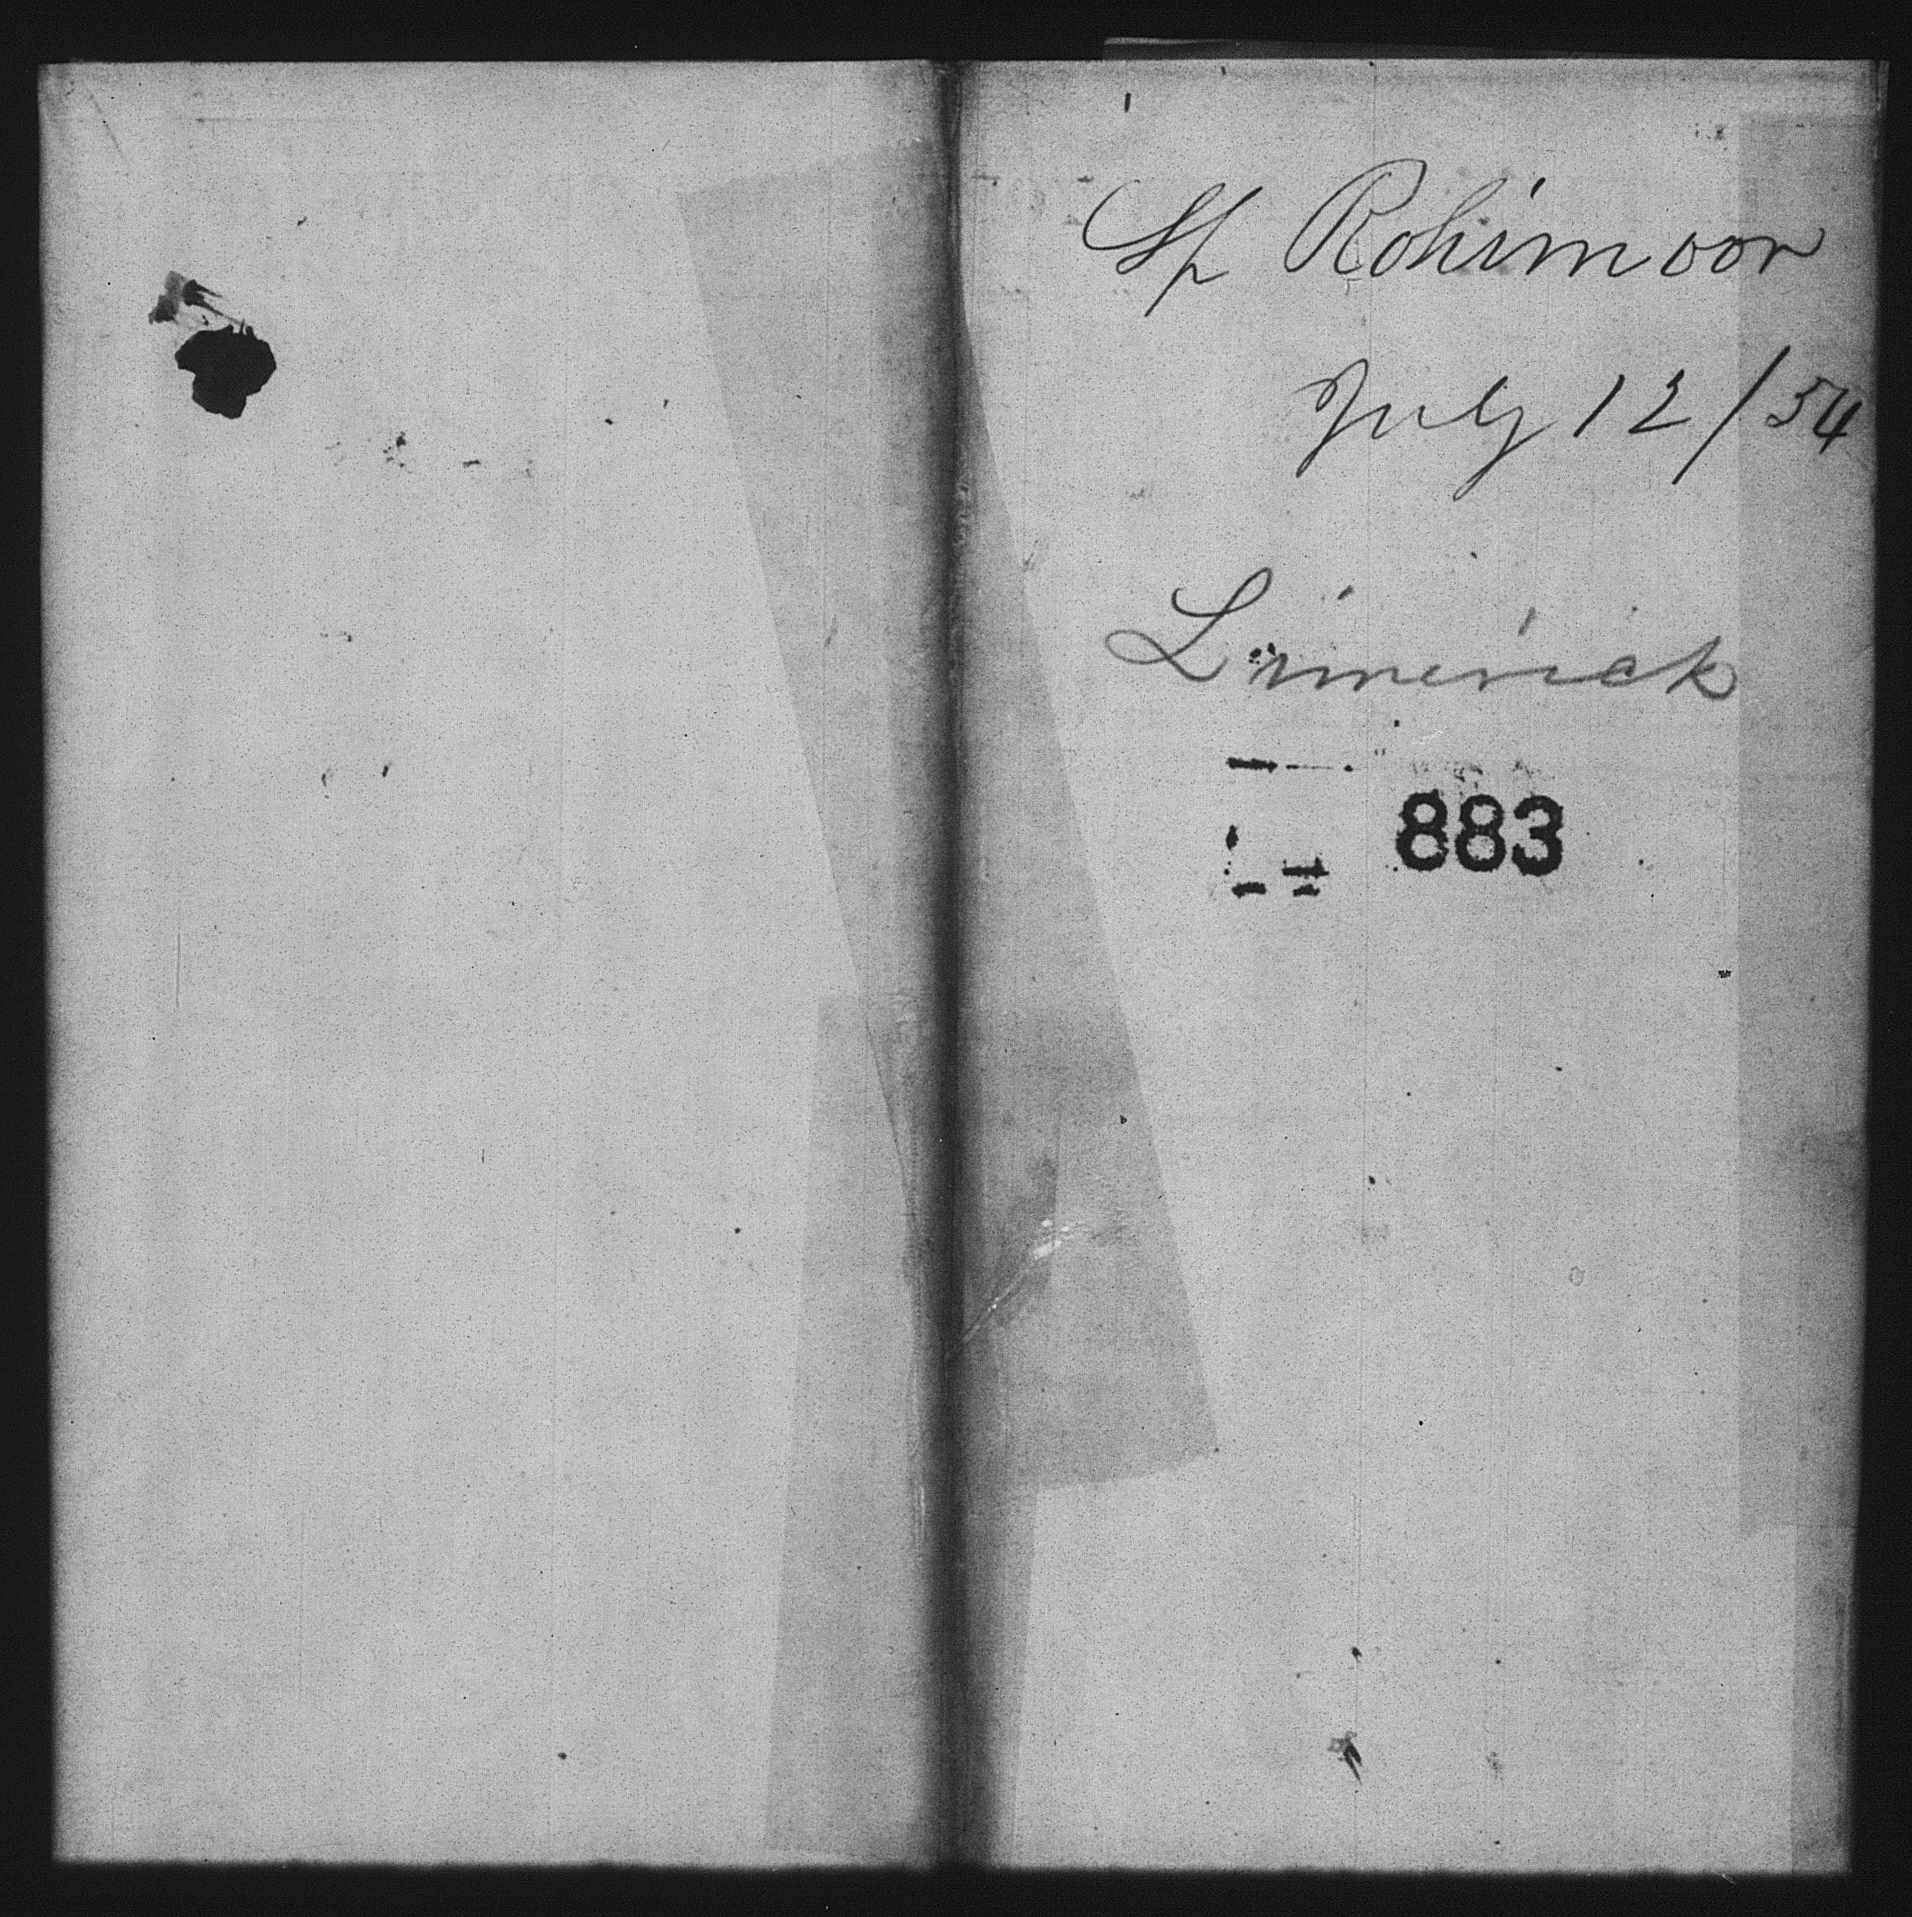 Sp Rohimoor
July 12/54
Limerick
883